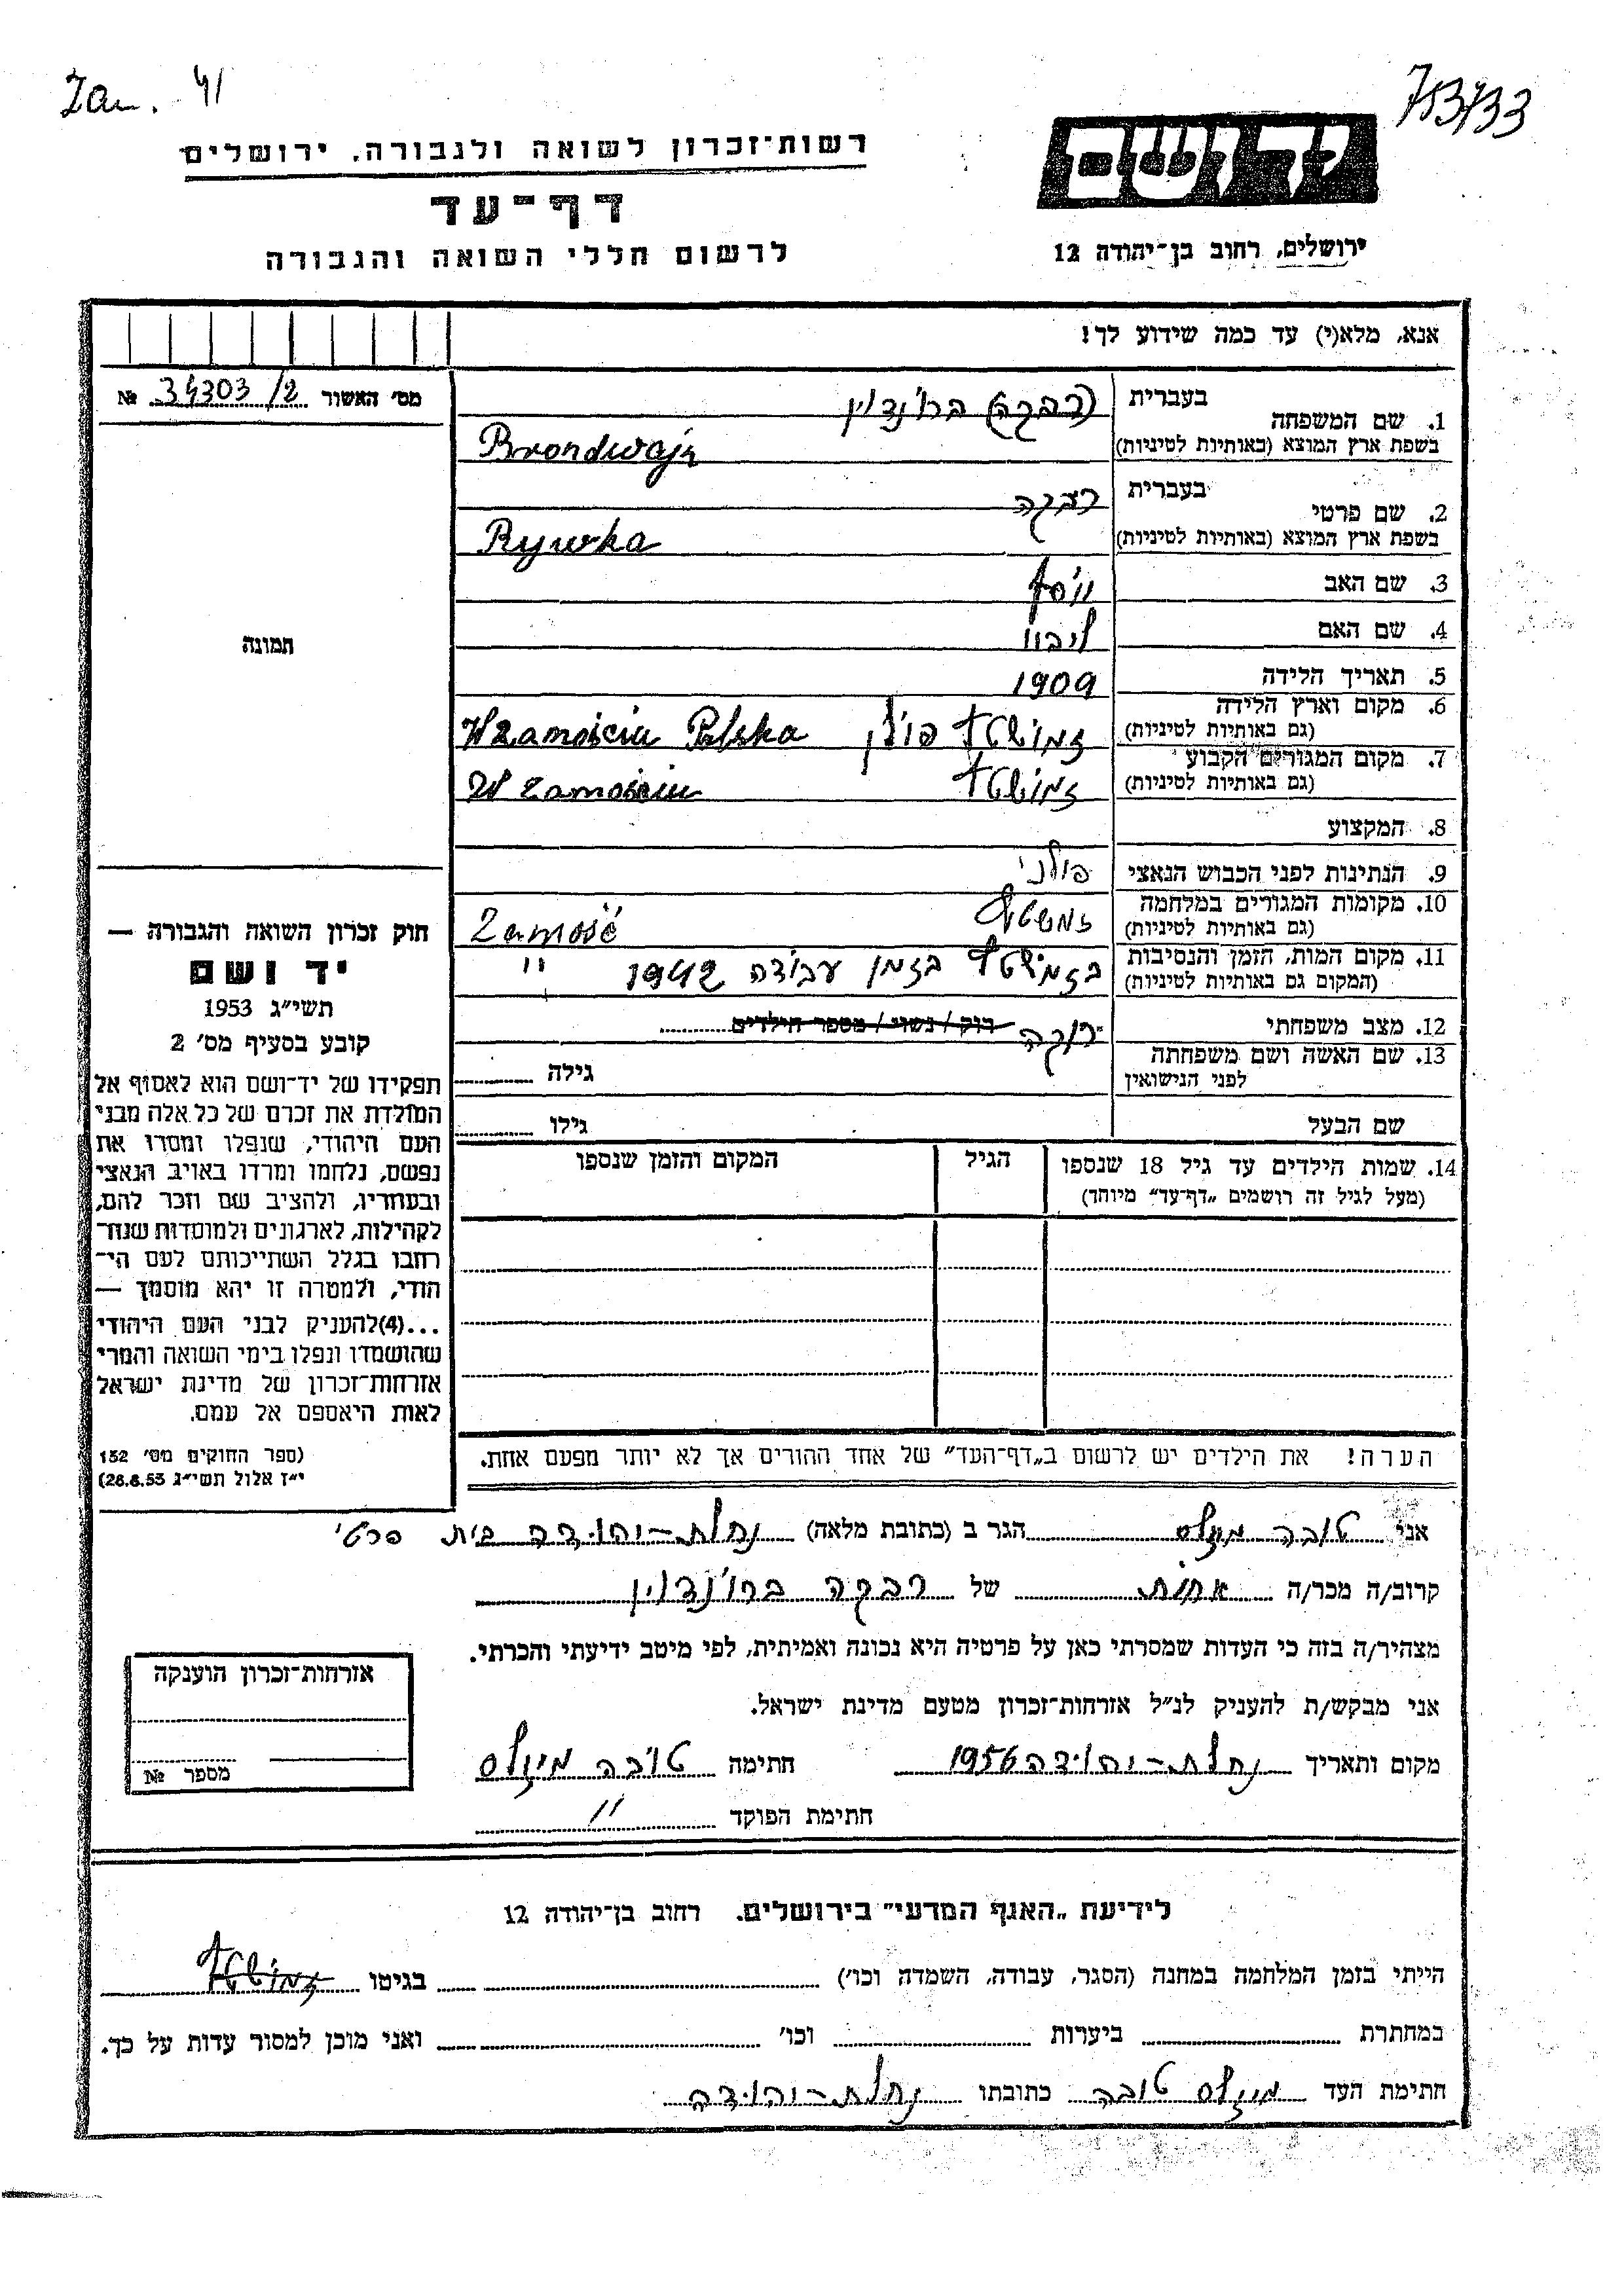 Zam. 41
753/33
רשות־זכרון לשואה ולגבורה, ירושלים
ידושם
דף־עד
לרשום חללי השואה והגבורה
ירושלים, רחוב בן־יהודה 12
אנא, מלא(י) עד כמה שידוע לך!
מס׳ האשור 34303/2 №
1. שם המשפחה
בעברית (רבקה) ברונדוין
בשפת ארץ המוצא (באותיות לטיניות) Brondwajn
2. שם פרטי
בעברית רבקה
בשפת ארץ המוצא (באותיות לטיניות) Rywka
3. שם האב
4. שם האם
5. תאריך הלידה 1909
6. מקום וארץ הלידה זמושטש פולין W Zamościu Polska
(גם באותיות לטיניות)
7. מקום המגורים הקבוע זמושטש W Zamościu
(גם באותיות לטיניות)
8. המקצוע
9. הנתינות לפני הכבוש הנאצי פולני
10. מקומות המגורים במלחמה זמשטש Zamość
(גם באותיות לטיניות)
11. מקום המות, הזמן והנסיבות בזמישטש בזמן עבודה 1942 "
(המקום גם באותיות לטיניות)
12. מצב משפחתי רוקה רוק / נשוי / מספר הילדים
13. שם האשה ושם משפחתה
לפני הנישואין
גילה
שם הבעל
גילו
14. שמות הילדים עד גיל 18 שנספו
(מעל לגיל זה רושמים „דף־עד״ מיוחד)
הגיל
המקום והזמן שנספו
תמונה
חוק זכרון השואה והגבורה —
יד ושם
תשי״ג 1953
קובע בסעיף מס׳ 2
תפקידו של יד־ושם הוא לאסוף אל
המולדת את זכרם של כל אלה מבני
העם היהודי, שנפלו ומסרו את
נפשם, נלחמו ומרדו באויב הנאצי
ובעוזריו, ולהציב שם וזכר להם,
לקהילות, לארגונים ולמוסדות שנח־
רבו בגלל השתייכותם לעם הי־
הודי, ולמטרה זו יהא מוסמך —
...(4)להעניק לבני העם היהודי
שהושמדו ונפלו בימי השואה והמרי
אזרחות־זכרון של מדינת ישראל
לאות היאספם אל עמם.
(ספר החוקים מס׳ 132
י״ז אלול תשי״ג 28.8.53)
הערה! את הילדים יש לרשום ב„דף־העד״ של אחד ההורים אך לא יותר מפעם אחת.
אני טובה מיזלס הגר ב (כתובת מלאה) נחלת־יהודה בית פרטי
קרוב/ה מכר/ה אחות של רבקה ברונדוין
מצהיר/ה בזה כי העדות שמסרתי כאן על פרטיה היא נכונה ואמיתית, לפי מיטב ידיעתי והכרתי.
אני מבקש/ת להעניק לנ״ל אזרחות־זכרון מטעם מדינת ישראל.
מקום ותאריך נחלת־יהודה 1956 חתימה טובה מיזלס
חתימת הפוקד "
אזרחות־זכרון הוענקה
מספר №
לידיעת „האגף המדעי״ בירושלים. רחוב בן־יהודה 12
הייתי בזמן המלחמה במחנה (הסגר, עבודה, השמדה וכו׳) בגיטו זמושטש
במחתרת ביערות וכו׳ ואני מוכן למסור עדות על כך.
חתימת העד מיזלס טובה כתובתו נחלת־יהודה